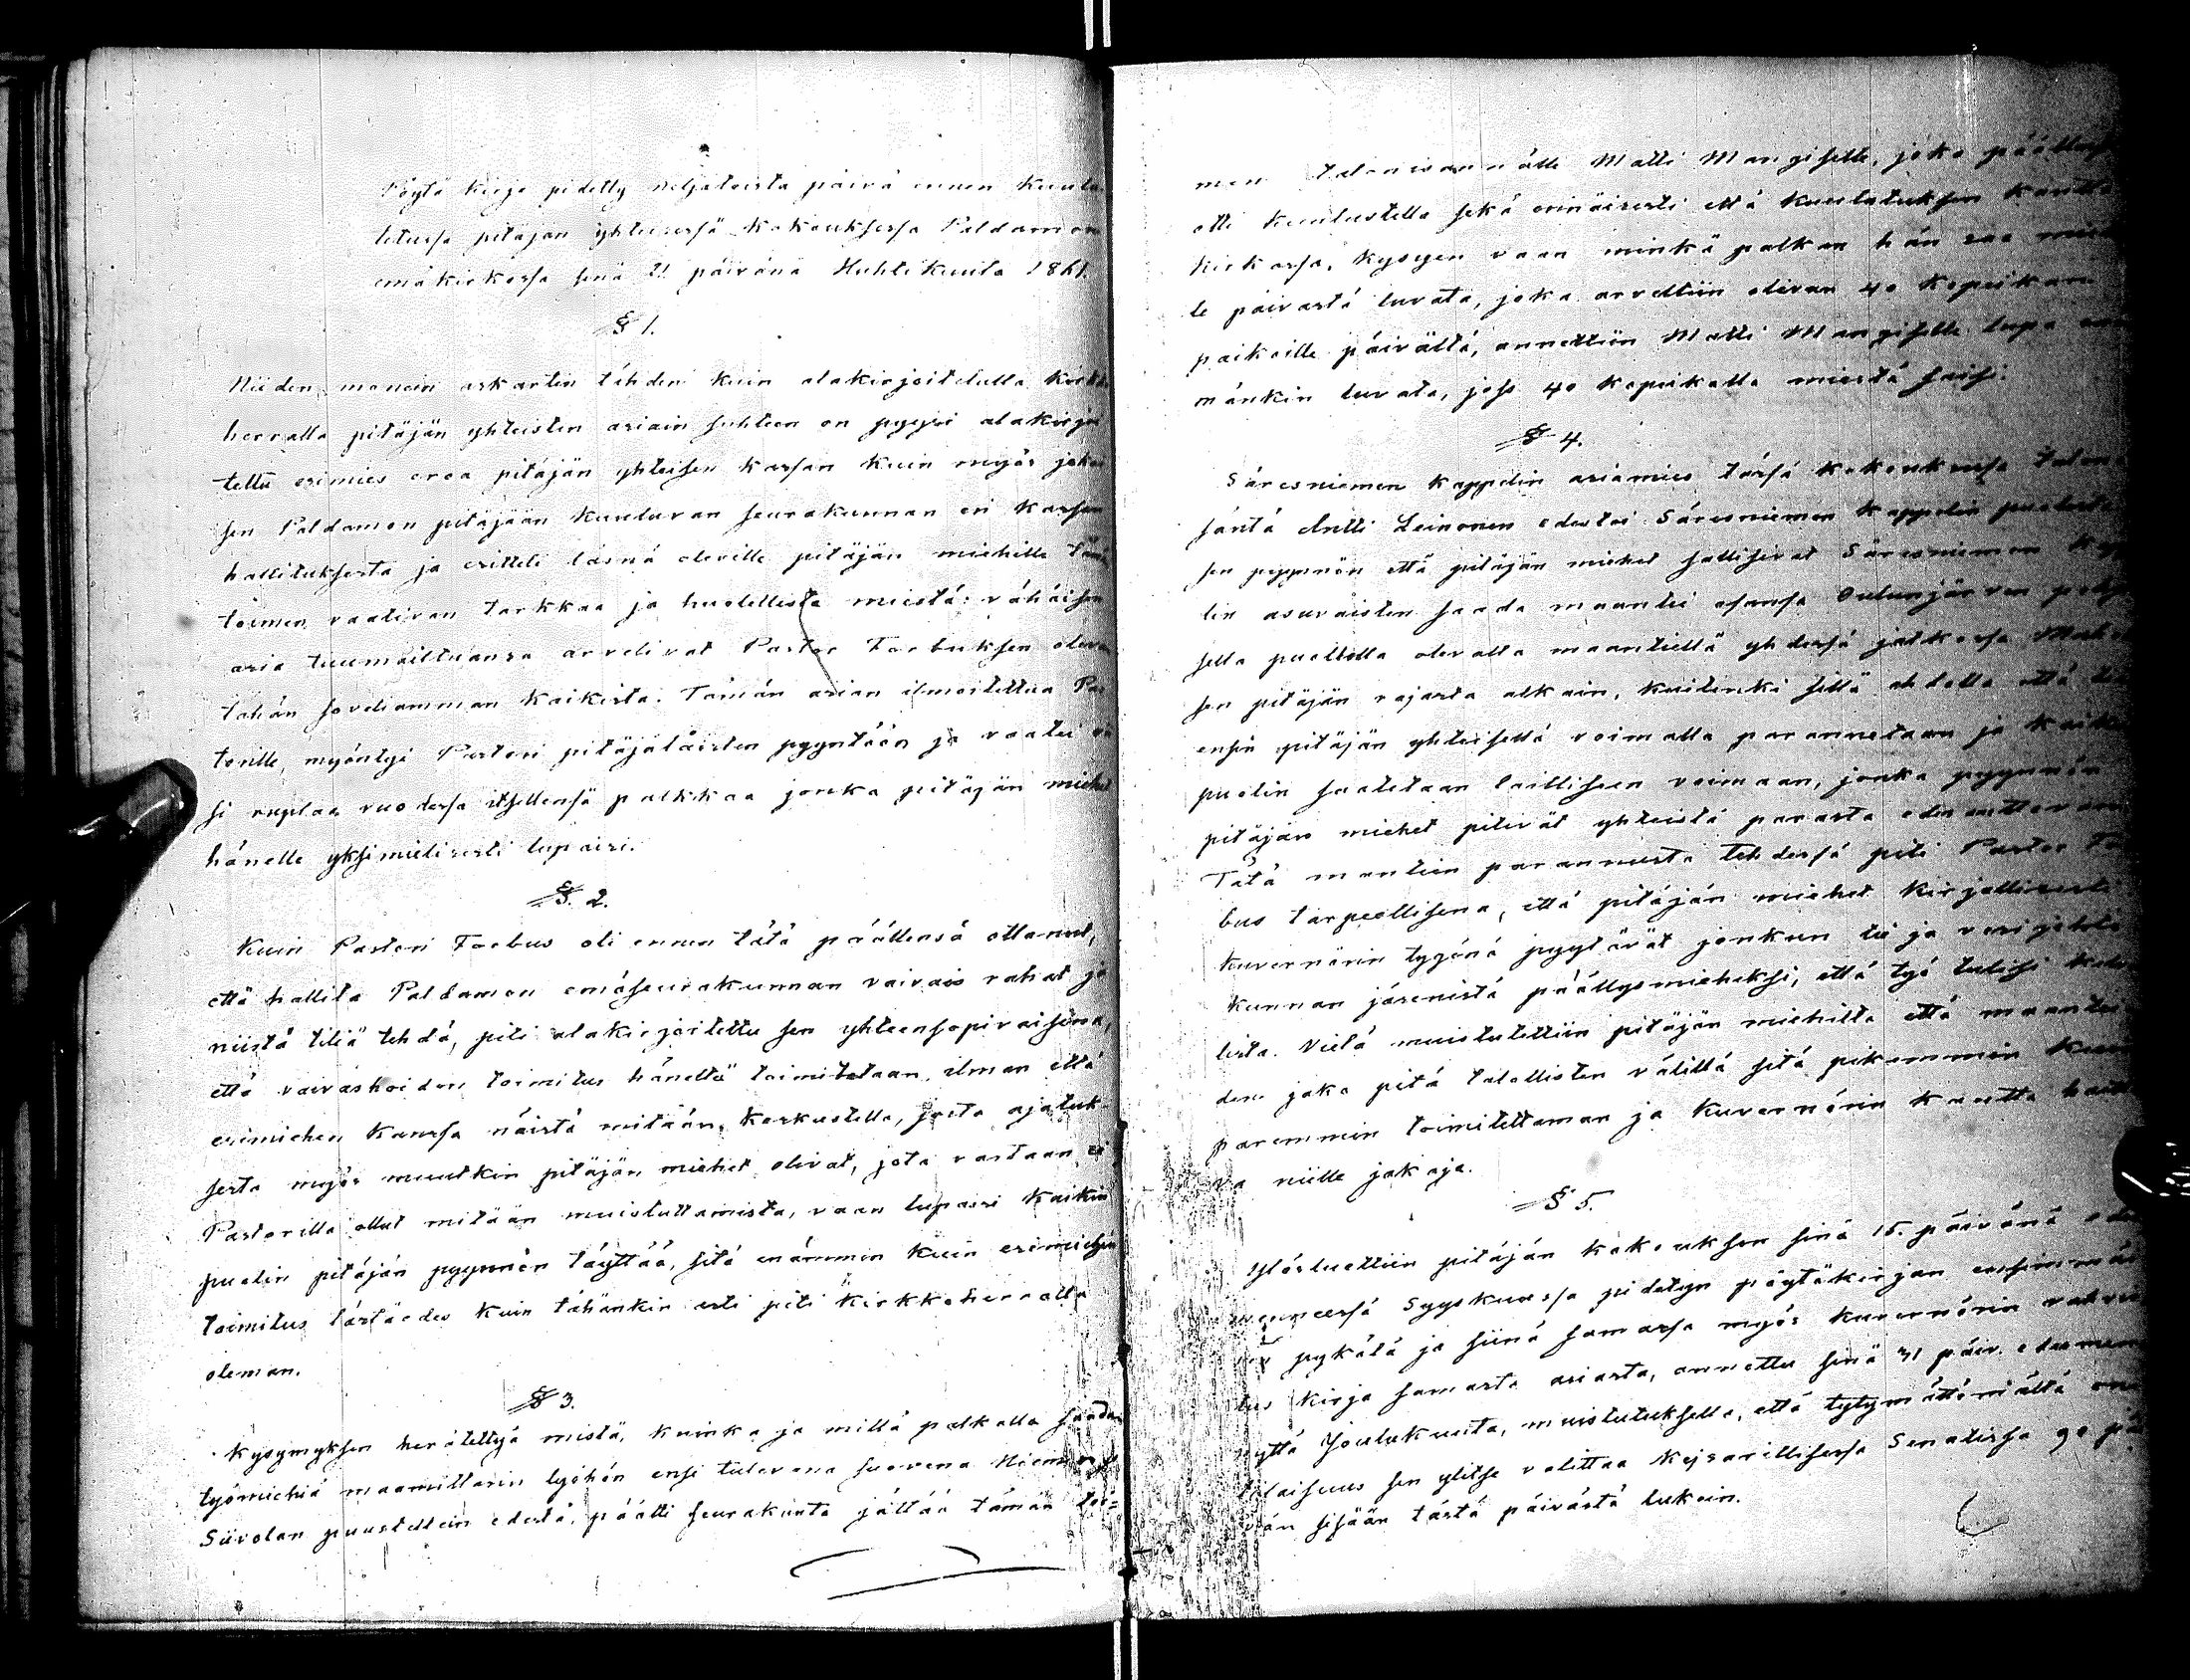 Pöytä kirja pidetty neljätoista päivä ennen kuulu
tetussa pitäjän yhteisessä kokouksessa Paldamon
emäkirkossa sinä 21 päivänä Huhtikuuta 1861.
§ 1.
Niiden monein askartin tähden kuin alakirjoitetulla kirkko
herralla pitäjän yhteisten asiain suhteen on pyysi alakirjoi
tettu esimies eroa pitäjän yhteisen kassan kuin myös joka
sen Paldamon pitäjään kuuluvan seurakunnan eri kassan
hallituksesta ja eritteli läsnä oleville pitäjän miehille tämä
toimen vaativan tarkkaa ja huolellista miestä: vähäisen
asia tuumailtuansa arvelivat Pastor Forbuksen olevan
tähän soveliamman kaikista. Tämän asian ilmoitettua Pas
torille, myöntyi Pastori pitäjäläisten pyyntöön ja vaatei
si ruplaa vuodessa itsellensä palkkaa jonka pitäjän miehet
hänelle yksimielisesti lupaisi.
§. 2.
Kuin Pastori Forbus oli ennen tätä päällensä ottanut,
että hallita Paldamon emäseurakunnan vaivais rahat ja
niistä tiliä tehdä, piti alakirjoitettu sen yhteensopivaisena,
että vaivashoidon toimitus häneltä toimitetaan ilman että
esimiehen kanssa näistä mitään keskustella, josta ajatuk-
sesta myös muutkin pitäjän miehet olivat, jota vastaan ei
Pastorilla ollut mitään muistuttamista, vaan lupaisi kaikin
puolin pitäjän pyynnön täyttää, sitä enämmin kuin esimiehen
toimitus tästäedes kuin tähänkin asti piti kirkkoherralla
oleman.
§ 3.
Kysymyksen herätettyä mistä, kuinka ja millä palkalla saada
työmiehiä maamittarin työhön ensi tulevana suovena
Siivolan puustellein edestä, päätti seurakunta jättää tämän toi=
men talonisannälle Matti Mangiselle, joka
otti kuulustella sekä erinäisesti että kuulutuksen kautta
kirkossa, kysyen vaan minkä palkan hän saa
le päivästä luvata, joka arveltiin olevan 40 kopeikan
paikoille päivältä, annettiin Matti Mangiselle lupa
mänkin luvata, joss 40 kopeikalla miestä saisi.
§ 4.
Säresniemen kappelin asiamies tässä kokouksessa talon
säntä Antti Leinonen edestoi Säresniemen kappelin puolesta
sen pyynnön että pitäjän miehet sallisivat Säresniemen kap
lin asuvaisten saada maantei osansa Oulunjärven pohjo
sella puolella olevalla maantiellä yhdessä jatkossa
sen pitäjän rajasta alkain, kuitenki sillä ehdolla että
ensin pitäjän yhteisellä voimalla parannetaan ja kaikin
puolin saatetaan lailliseen voimaan, jonka pyynnön
pitäjän miehet pitivät yhteistä parasta edesauttavan
Tätä mantein parannusta tehdessä piti Pastor For
bus tarpeellisena, että pitäjän miehet kirjallisesti
kuvernörin tyyönä pyytävät jonkun tii ja vesijohto
kunnan jäsenistä päällysmieheksi, että työ tulisi
lista. Vielä muistutettiin pitäjän miehiltä että maantei
den jako pitä talollisten välillä sitä pikemmin kuin
paremmin toimitettaman ja kuvernörin kautta
va niille jakaja.
§ 5.
Ylösluettiin pitäjän kokouksen sinä 15. päivänä
menneessä Syyskuussa pidetyn pöytäkirjan ensimmäi
pykälä ja siinä samassa myös kuvernörin vahvis
tus kirja samasta asiasta, annettu sinä 31 päiv. edesmen
nyttä Joulukuuta, muistutuksella, että tytymättömältä on
tilaisuus sen ylitse valittaa Kejsarillisessa Senatissa 90 päi
vän sisään tästä päivästä lukein.